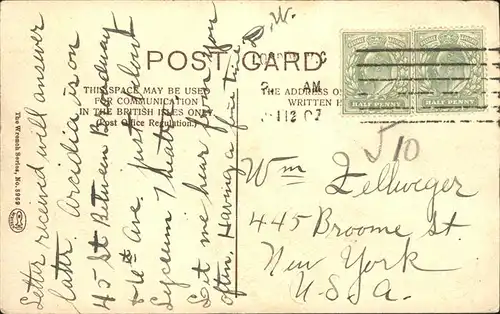 POST CARD
THIS SPACE MAY BE USED
FOR COMMUNICATION
IN THE BRITISH ISLES ONLY
(Post Office Regulation.)
THE ADDRESS O
WRITTEN
AM
HALF PENNY
HALF PENNY
The Wrench Series, No. 3969
Letter received will answer
later. Arcadia is on
45 St Between Broadway
+ 6th Ave. just about
Lyceum Theatre
Let me hear from you
often, Having a fine time
W.
Wm Zellweger
445 Broome St
New York
U.S.A.
10